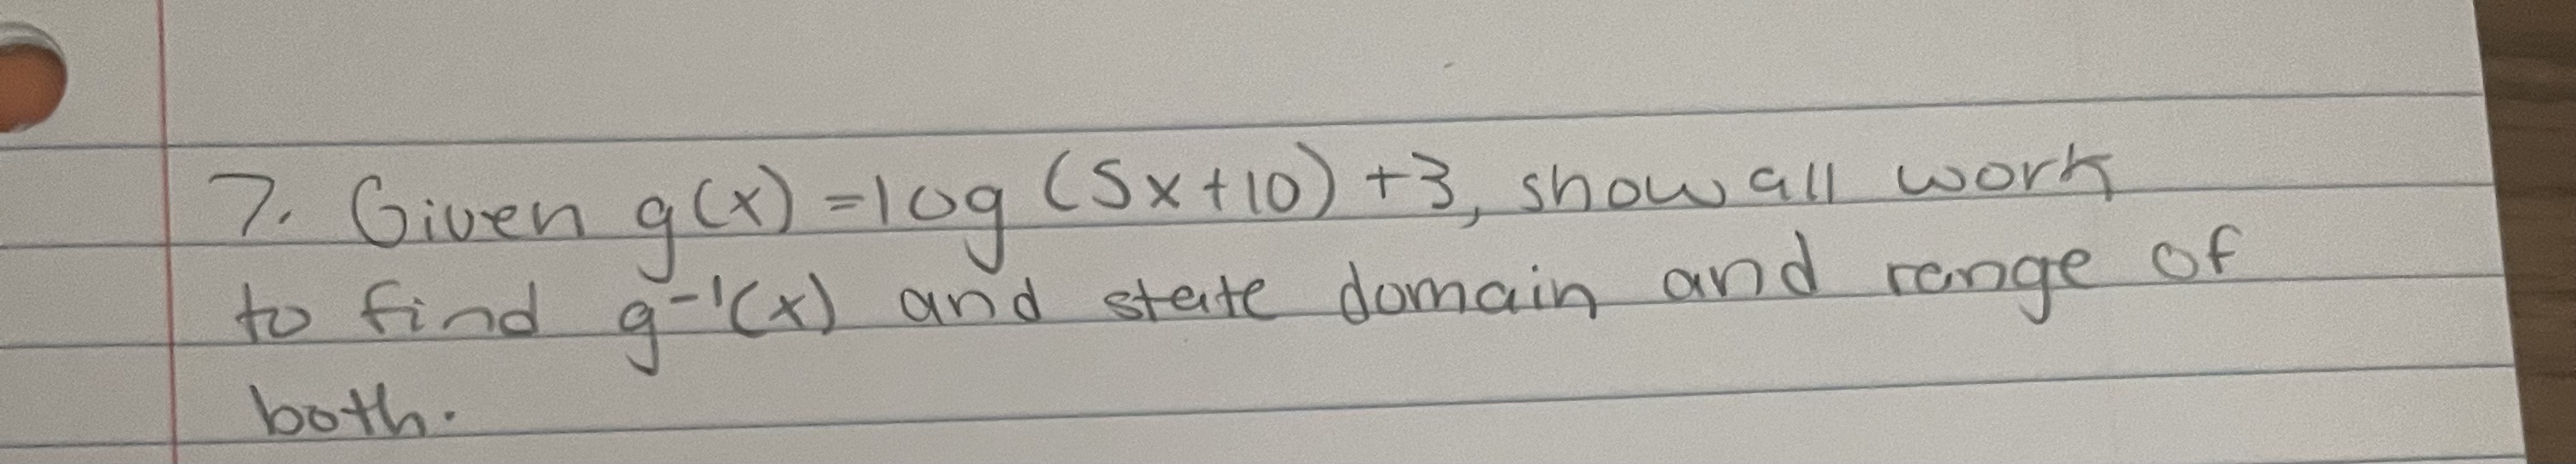 7. Given g(x) = log (5x+10) +3, show all work
to find g⁻¹(x) and state domain and range of
both.